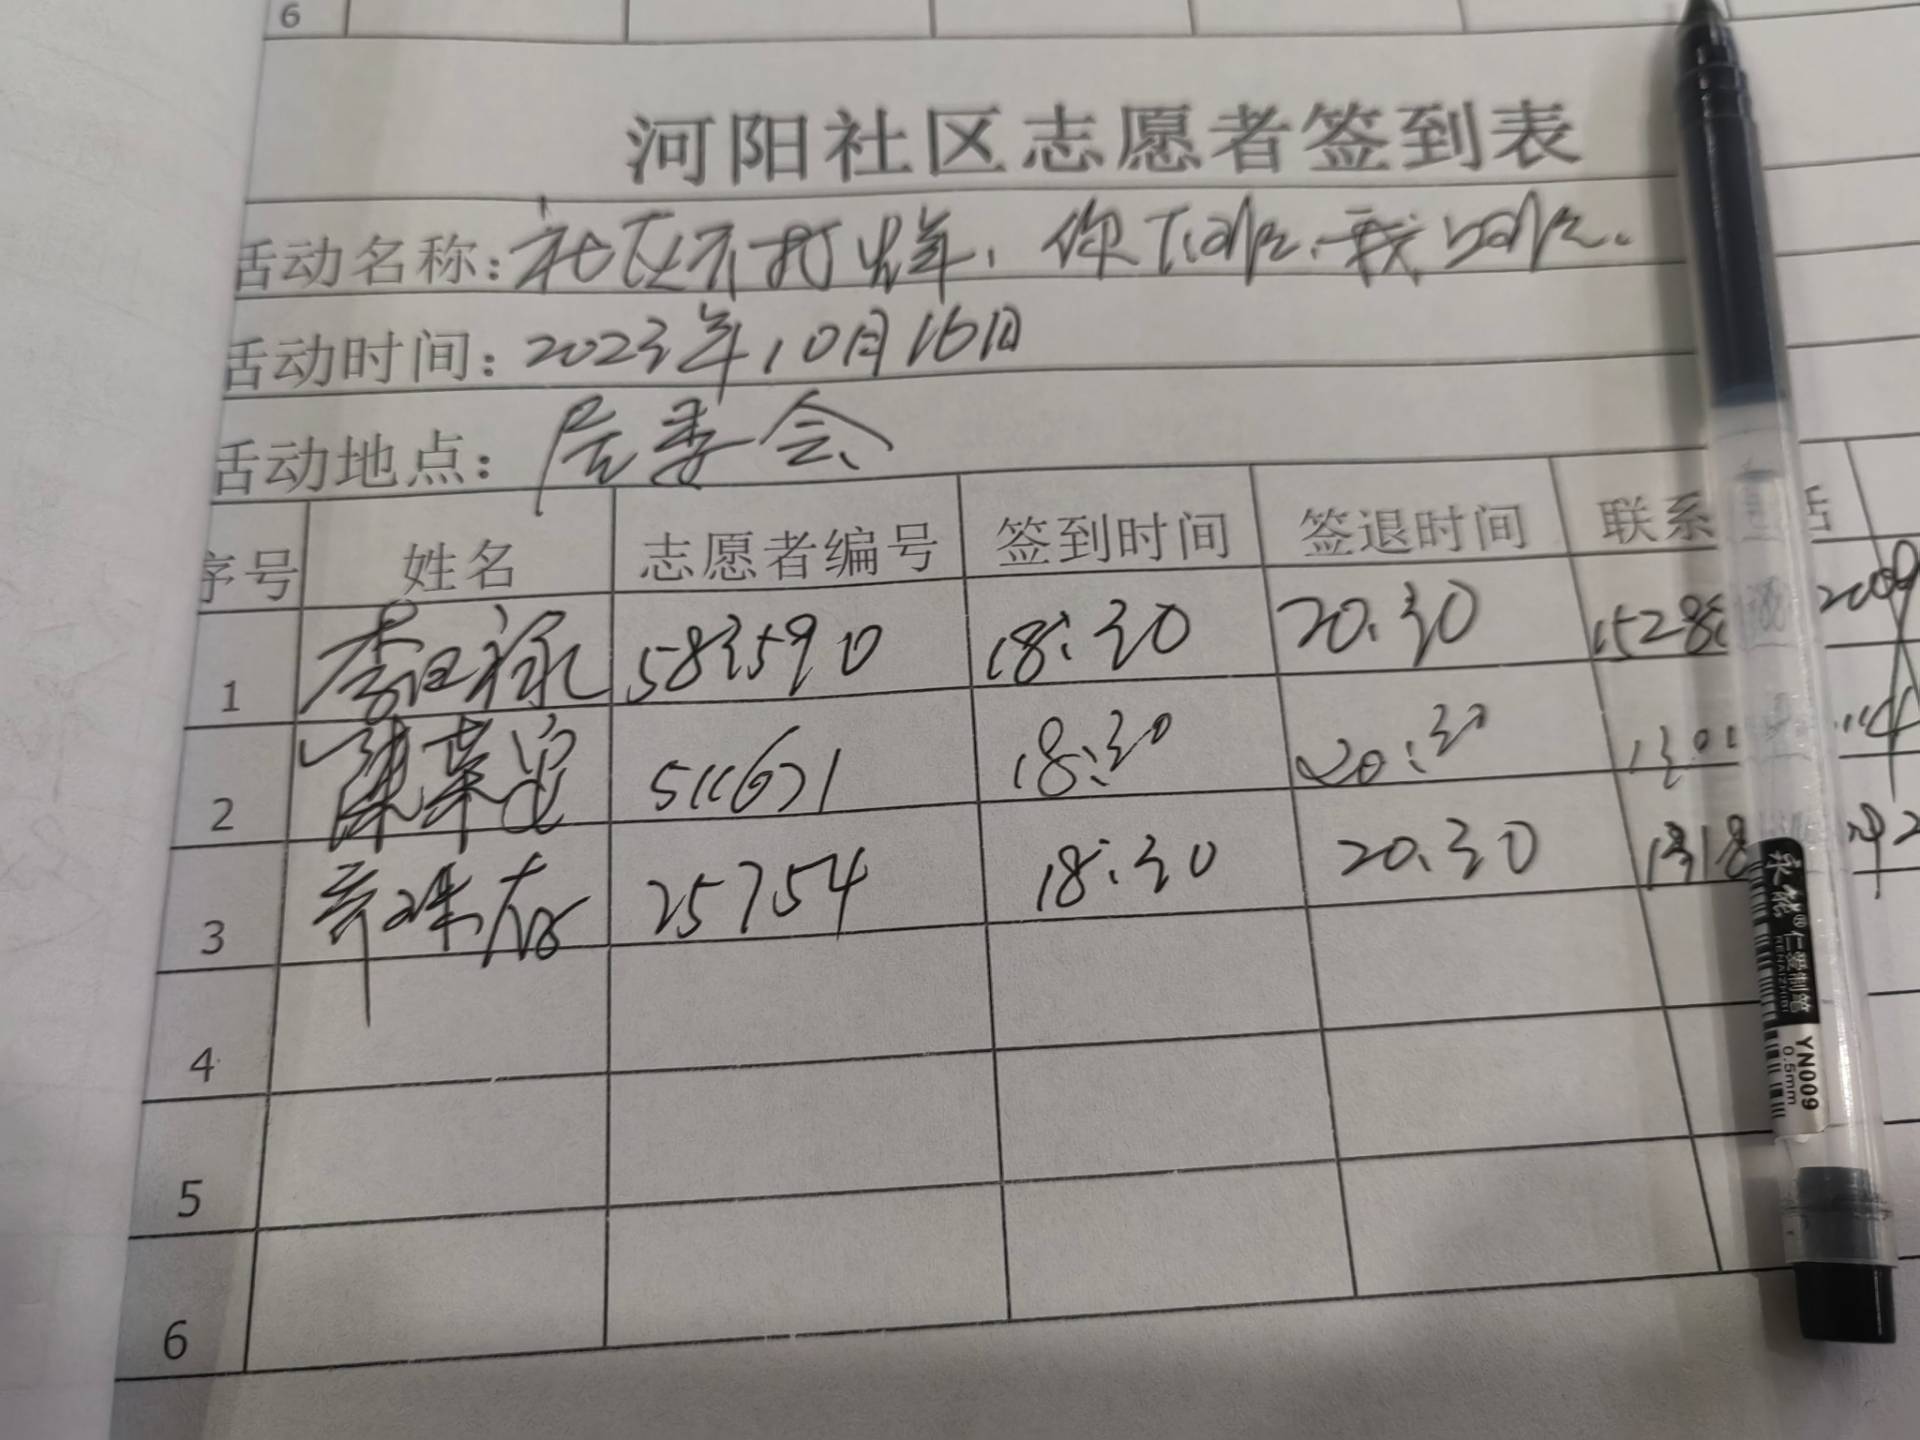 6
河阳社区志愿者签到表
活动名称:社区不打烊,你下班,我上班.
活动时间:2023年10月16日
活动地点:居委会
序号 姓名 志愿者编号 签到时间 签退时间 联系
1 李日禄 583590 18:30 20.30 1528 2009
2 陈荣 511671 18:30 20:30 1301
3 25754 18:30 20.30 1318
4
5
6
永能® 仁爱制笔
RENAIZHIBI
YN009
0.5mm